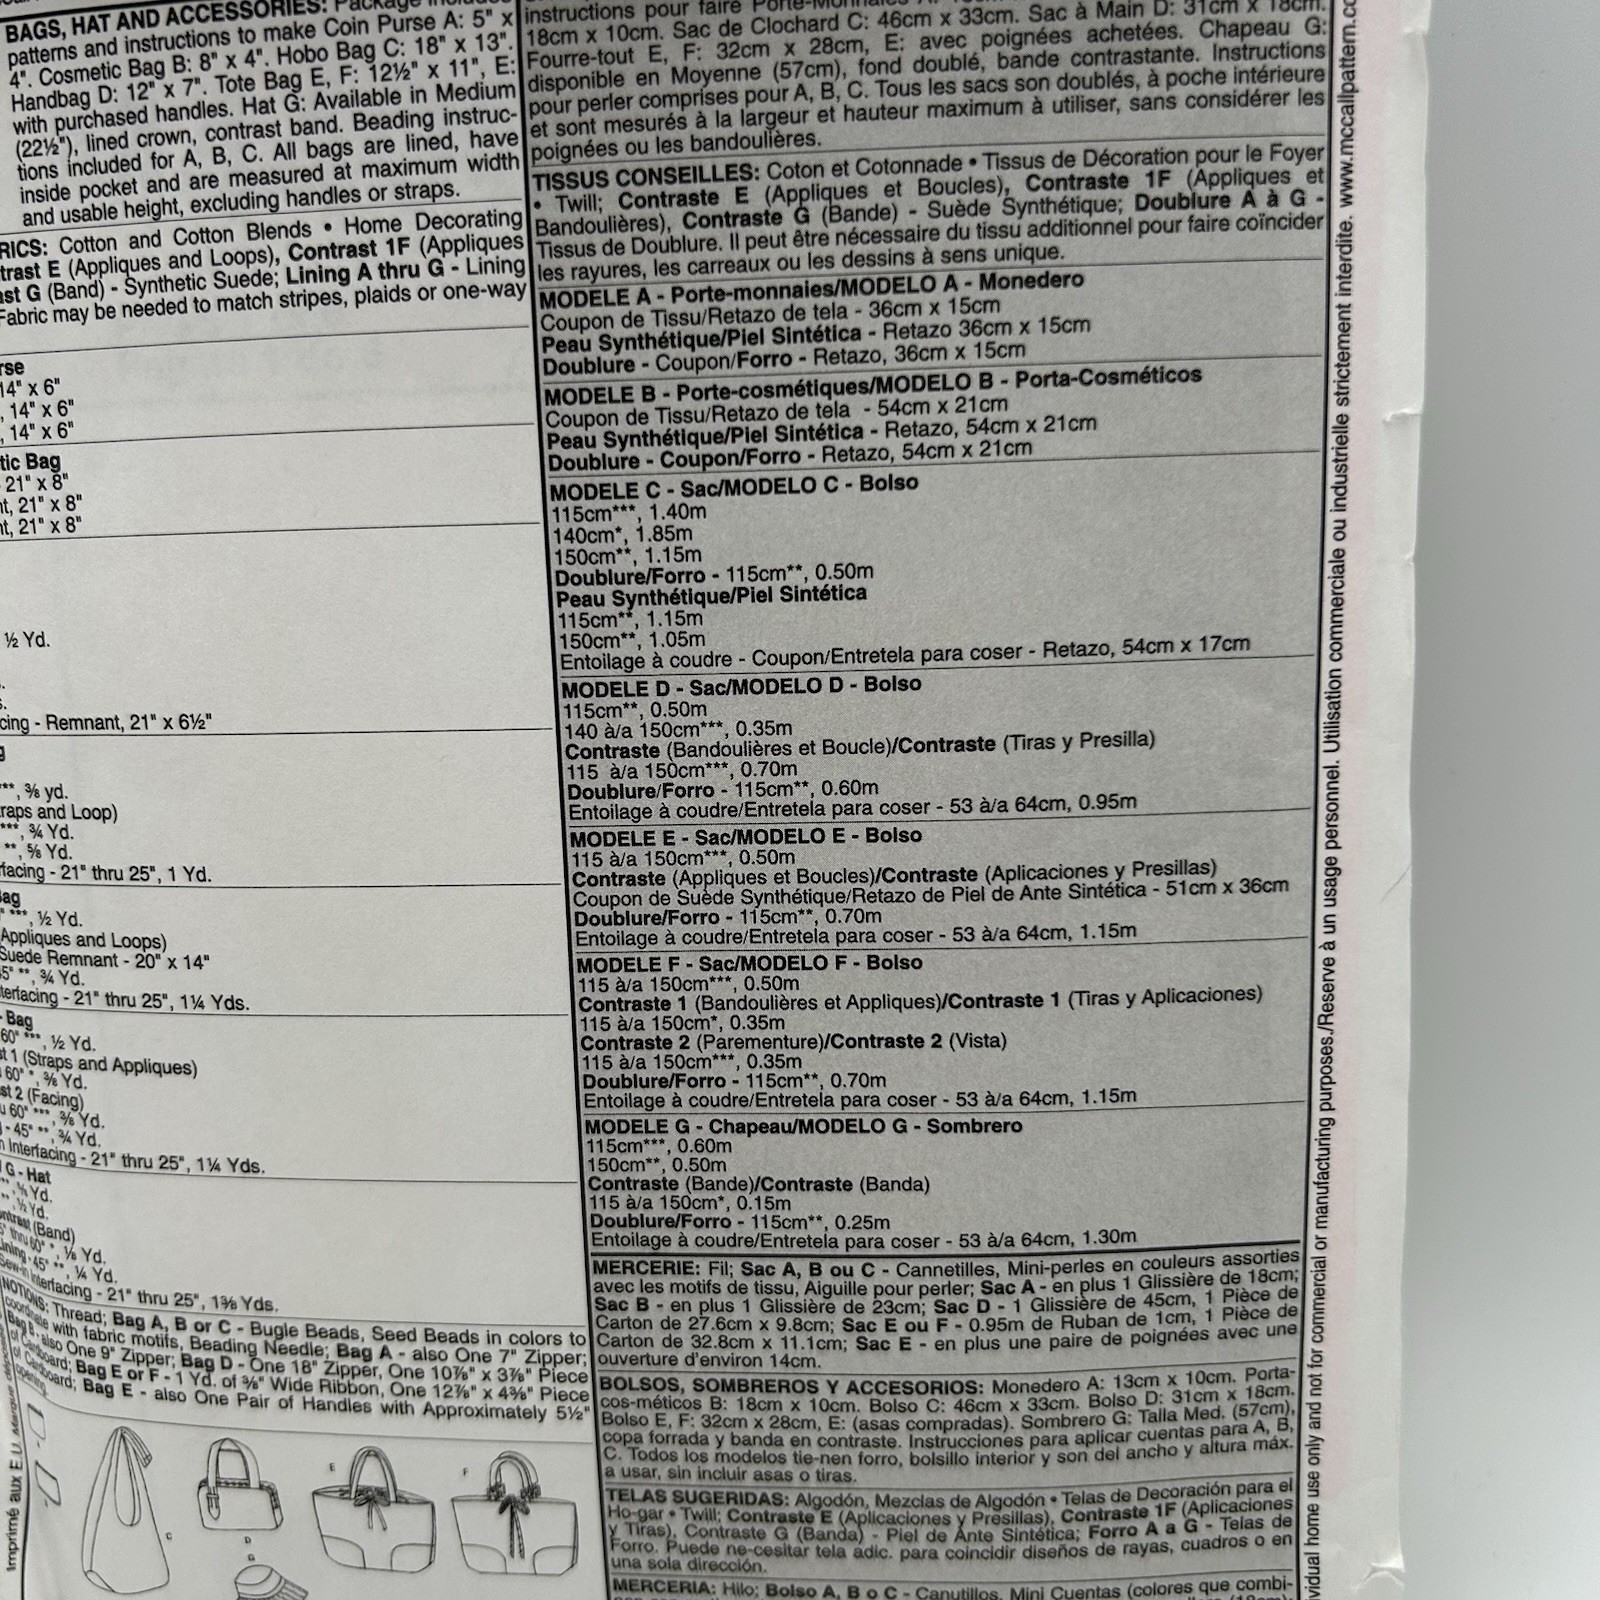 BAGS, HAT AND ACCESSORIES: Package includes
patterns and instructions to make Coin Purse A: 5" x
4". Cosmetic Bag B: 8" x 4". Hobo Bag C: 18" x 13".
Handbag D: 12" x 7". Tote Bag E, F: 12½" x 11", E:
with purchased handles. Hat G: Available in Medium
(22½"), lined crown, contrast band. Beading instruc-
tions included for A, B, C. All bags are lined, have
inside pocket and are measured at maximum width
and usable height, excluding handles or straps.
RICS: Cotton and Cotton Blends • Home Decorating
trast E (Appliques and Loops), Contrast 1F (Appliques
ast G (Band) - Synthetic Suede; Lining A thru G - Lining
Fabric may be needed to match stripes, plaids or one-way
rse
14" x 6"
, 14" x 6"
, 14" x 6"
tic Bag
21" x 8"
nt, 21" x 8"
nt, 21" x 8"
½ Yd.
cing - Remnant, 21" x 6½"
***, ⅜ yd.
raps and Loop)
***, ¾ Yd.
**, ⅝ Yd.
rfacing - 21" thru 25", 1 Yd.
Bag
***, ½ Yd.
Appliques and Loops)
Suede Remnant - 20" x 14"
5" **, ¾ Yd.
terfacing - 21" thru 25", 1¼ Yds.
- Bag
60" ***, ½ Yd.
st 1 (Straps and Appliques)
60" *, ⅜ Yd.
st 2 (Facing)
u 60" ***, ⅜ Yd.
- 45" **, ¾ Yd.
n Interfacing - 21" thru 25", 1¼ Yds.
G - Hat
Yd.
½ Yd.
ntrast (Band)
5" thru 60" *, ⅛ Yd.
Lining - 45" **, ¼ Yd.
Sew-in Interfacing - 21" thru 25", 1⅜ Yds.
NOTIONS: Thread; Bag A, B or C - Bugle Beads, Seed Beads in colors to
coordinate with fabric motifs, Beading Needle; Bag A - also One 7" Zipper;
Bag B - also One 9" Zipper; Bag D - One 18" Zipper, One 10⅞" x 3⅞" Piece
of Cardboard; Bag E or F - 1 Yd. of ⅜" Wide Ribbon, One 12⅞" x 4⅜" Piece
of Cardboard; Bag E - also One Pair of Handles with Approximately 5½"
opening.
C
D
E
F
G
Imprimé aux E.U.
instructions pour faire Porte-Monnaies A:
18cm x 10cm. Sac de Clochard C: 46cm x 33cm. Sac à Main D: 31cm x 18cm.
Fourre-tout E, F: 32cm x 28cm, E: avec poignées achetées. Chapeau G:
disponible en Moyenne (57cm), fond doublé, bande contrastante. Instructions
pour perler comprises pour A, B, C. Tous les sacs son doublés, à poche intérieure
et sont mesurés à la largeur et hauteur maximum à utiliser, sans considérer les
poignées ou les bandoulières.
TISSUS CONSEILLES: Coton et Cotonnade • Tissus de Décoration pour le Foyer
• Twill; Contraste E (Appliques et Boucles), Contraste 1F (Appliques et
Bandoulières), Contraste G (Bande) - Suède Synthétique; Doublure A à G -
Tissus de Doublure. Il peut être nécessaire du tissu additionnel pour faire coïncider
les rayures, les carreaux ou les dessins à sens unique.
MODELE A - Porte-monnaies/MODELO A - Monedero
Coupon de Tissu/Retazo de tela - 36cm x 15cm
Peau Synthétique/Piel Sintética - Retazo 36cm x 15cm
Doublure - Coupon/Forro - Retazo, 36cm x 15cm
MODELE B - Porte-cosmétiques/MODELO B - Porta-Cosméticos
Coupon de Tissu/Retazo de tela - 54cm x 21cm
Peau Synthétique/Piel Sintética - Retazo, 54cm x 21cm
Doublure - Coupon/Forro - Retazo, 54cm x 21cm
MODELE C - Sac/MODELO C - Bolso
115cm***, 1.40m
140cm*, 1.85m
150cm**, 1.15m
Doublure/Forro - 115cm**, 0.50m
Peau Synthétique/Piel Sintética
115cm**, 1.15m
150cm**, 1.05m
Entoilage à coudre - Coupon/Entretela para coser - Retazo, 54cm x 17cm
MODELE D - Sac/MODELO D - Bolso
115cm**, 0.50m
140 à/a 150cm***, 0.35m
Contraste (Bandoulières et Boucle)/Contraste (Tiras y Presilla)
115 à/a 150cm***, 0.70m
Doublure/Forro - 115cm**, 0.60m
Entoilage à coudre/Entretela para coser - 53 à/a 64cm, 0.95m
MODELE E - Sac/MODELO E - Bolso
115 à/a 150cm***, 0.50m
Contraste (Appliques et Boucles)/Contraste (Aplicaciones y Presillas)
Coupon de Suède Synthétique/Retazo de Piel de Ante Sintética - 51cm x 36cm
Doublure/Forro - 115cm**, 0.70m
Entoilage à coudre/Entretela para coser - 53 à/a 64cm, 1.15m
MODELE F - Sac/MODELO F - Bolso
115 à/a 150cm***, 0.50m
Contraste 1 (Bandoulières et Appliques)/Contraste 1 (Tiras y Aplicaciones)
115 à/a 150cm*, 0.35m
Contraste 2 (Parementure)/Contraste 2 (Vista)
115 à/a 150cm***, 0.35m
Doublure/Forro - 115cm**, 0.70m
Entoilage à coudre/Entretela para coser - 53 à/a 64cm, 1.15m
MODELE G - Chapeau/MODELO G - Sombrero
115cm***, 0.60m
150cm**, 0.50m
Contraste (Bande)/Contraste (Banda)
115 à/a 150cm*, 0.15m
Doublure/Forro - 115cm**, 0.25m
Entoilage à coudre/Entretela para coser - 53 à/a 64cm, 1.30m
MERCERIE: Fil; Sac A, B ou C - Cannetilles, Mini-perles en couleurs assorties
avec les motifs de tissu, Aiguille pour perler; Sac A - en plus 1 Glissière de 18cm;
Sac B - en plus 1 Glissière de 23cm; Sac D - 1 Glissière de 45cm, 1 Pièce de
Carton de 27.6cm x 9.8cm; Sac E ou F - 0.95m de Ruban de 1cm, 1 Pièce de
Carton de 32.8cm x 11.1cm; Sac E - en plus une paire de poignées avec une
ouverture d'environ 14cm.
BOLSOS, SOMBREROS Y ACCESORIOS: Monedero A: 13cm x 10cm. Porta-
cos-méticos B: 18cm x 10cm. Bolso C: 46cm x 33cm. Bolso D: 31cm x 18cm.
Bolso E, F: 32cm x 28cm, E: (asas compradas). Sombrero G: Talla Med. (57cm),
copa forrada y banda en contraste. Instrucciones para aplicar cuentas para A, B,
C. Todos los modelos tie-nen forro, bolsillo interior y son del ancho y altura máx.
a usar, sin incluir asas o tiras.
TELAS SUGERIDAS: Algodón, Mezclas de Algodón • Telas de Decoración para el
Ho-gar • Twill; Contraste E (Aplicaciones y Presillas), Contraste 1F (Aplicaciones
y Tiras), Contraste G (Banda) - Piel de Ante Sintética; Forro A a G - Telas de
Forro. Puede ne-cesitar tela adic. para coincidir diseños de rayas, cuadros o en
una sola dirección.
MERCERIA: Hilo; Bolso A, B o C - Canutillos, Mini Cuentas (colores que combi-
vidual home use only and not for commercial or manufacturing purposes./Reservé à un usage personnel. Utilisation commerciale ou industrielle strictement interdite. www.mccallpattern.co